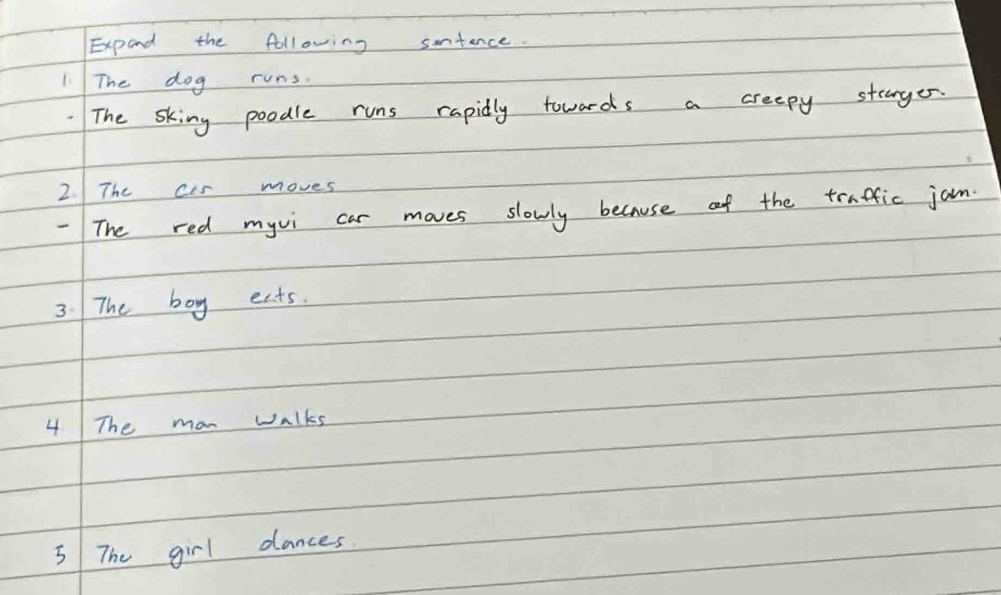 Expand the following sentence.
1. The dog runs.
- The skiny poodle runs rapidly towards a creepy stranger.
2. The car moves
- The red myvi car moves slowly because of the traffic jam.
3. The boy eats.
4 The man walks
5 The girl dances.